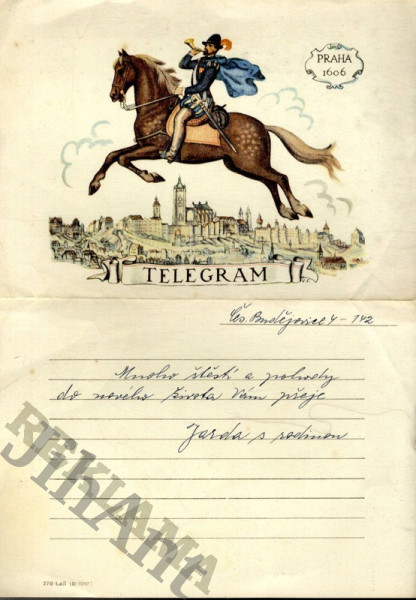 PRAHA
1606
TELEGRAM
Čes. Budějovice 4 - 142
Mnoho štěstí a pohody
do nového života Vám přeje
Jarda s rodinou
REKLAMA
JIHANT